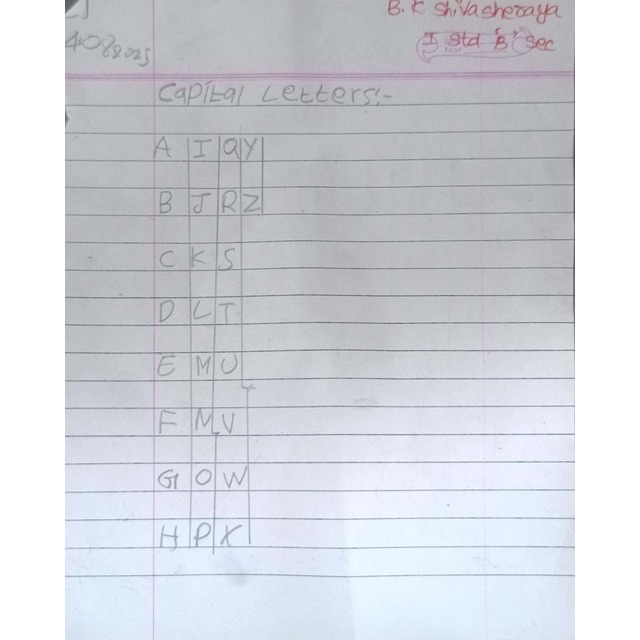 B.K Shivasheraya
I std 'B' sec
Capital Letters:-
A I Q Y
B J R Z
C K S
D L T
E M U
F N V
G O W
H P X